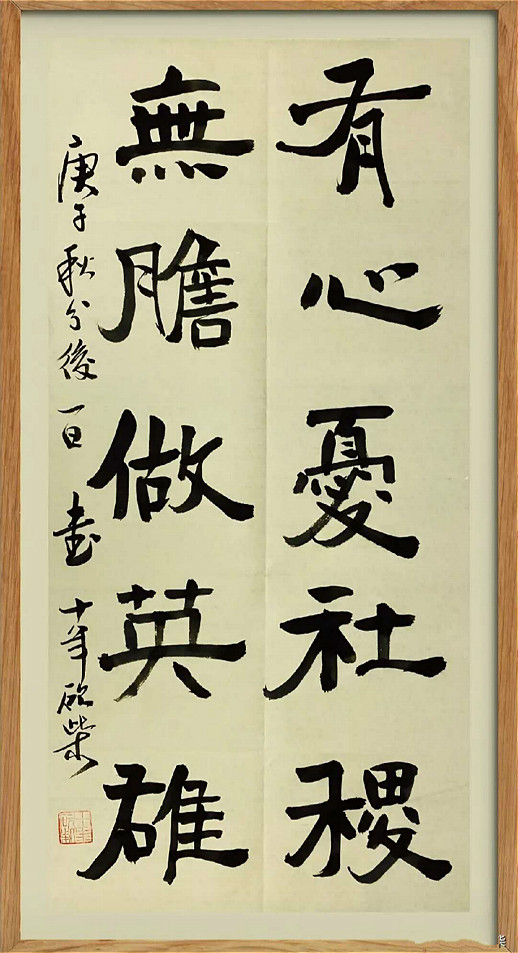 有心憂社稷
無膽做英雄
庚子秋分後一日 書 十年砍柴